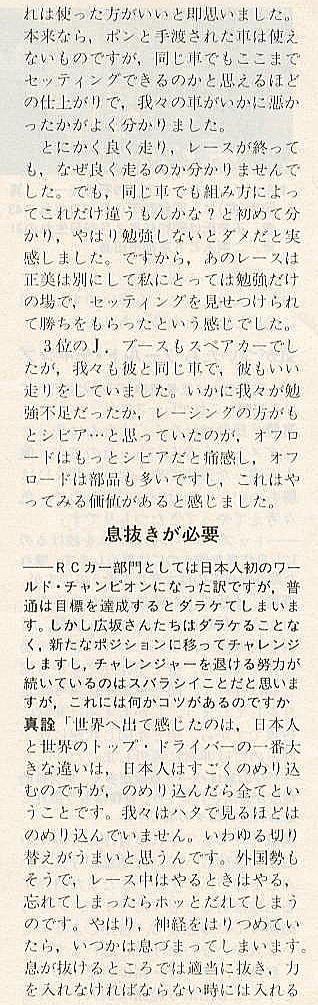 れは使った方がいいと即思いました。
本来なら，ポンと手渡された車は使え
ないものですが，同じ車でもここまで
セッティングできるのかと思えるほど
の仕上がりで，我々の車がいかに悪か
ったかがよく分かりました。
とにかく良く走り，レースが終って
も，なぜ良く走るのか分かりませんで
した。でも，同じ車でも組み方によっ
てこれだけ違うもんかな？と初めて分
かり，やはり勉強しないとダメだと実
感しました。ですから，あのレースは
正美は別にして私にとっては勉強だけ
の場で，セッティングを見せつけられ
て勝ちをもらったという感じでした。
3位のJ．ブースもスペアカーでし
たが，我々も彼と同じ車で，彼もいい
走りをしていました。いかに我々が勉
強不足だったか，レーシングの方がも
とシビア…と思っていたのが，オフロ
ードはもっとシビアだと痛感し，オフ
ロードは部品も多いですし，これはや
ってみる価値があると感じました。
息抜きが必要
――RCカー部門としては日本人初のワー
ルド・チャンピオンになった訳ですが，普
通は目標を達成するとダラケてしまいま
す。しかし広坂さんたちはダラケることな
く，新たなポジションに移ってチャレンジ
しますし，チャレンジャーを退ける努力が
続いているのはスバラシイことだと思いま
すが，これには何かコツがあるのですか
真詮「世界へ出て感じたのは，日本人
と世界のトップ・ドライバーの一番大
きな違いは，日本人はすごくのめり込
むのですが，のめり込んだら全てとい
うことです。我々はハタで見るほどは
のめり込んでいません。いわゆる切り
替えがうまいと思うんです。外国勢も
そうで，レース中はやるときはやる，
忘れてしまったらホッとだれてしまう
のです。やはり，神経をはりつめてい
たら，いつかは息づまってしまいます。
息が抜けるところでは適当に抜き，力
を入れなければならない時には入れる